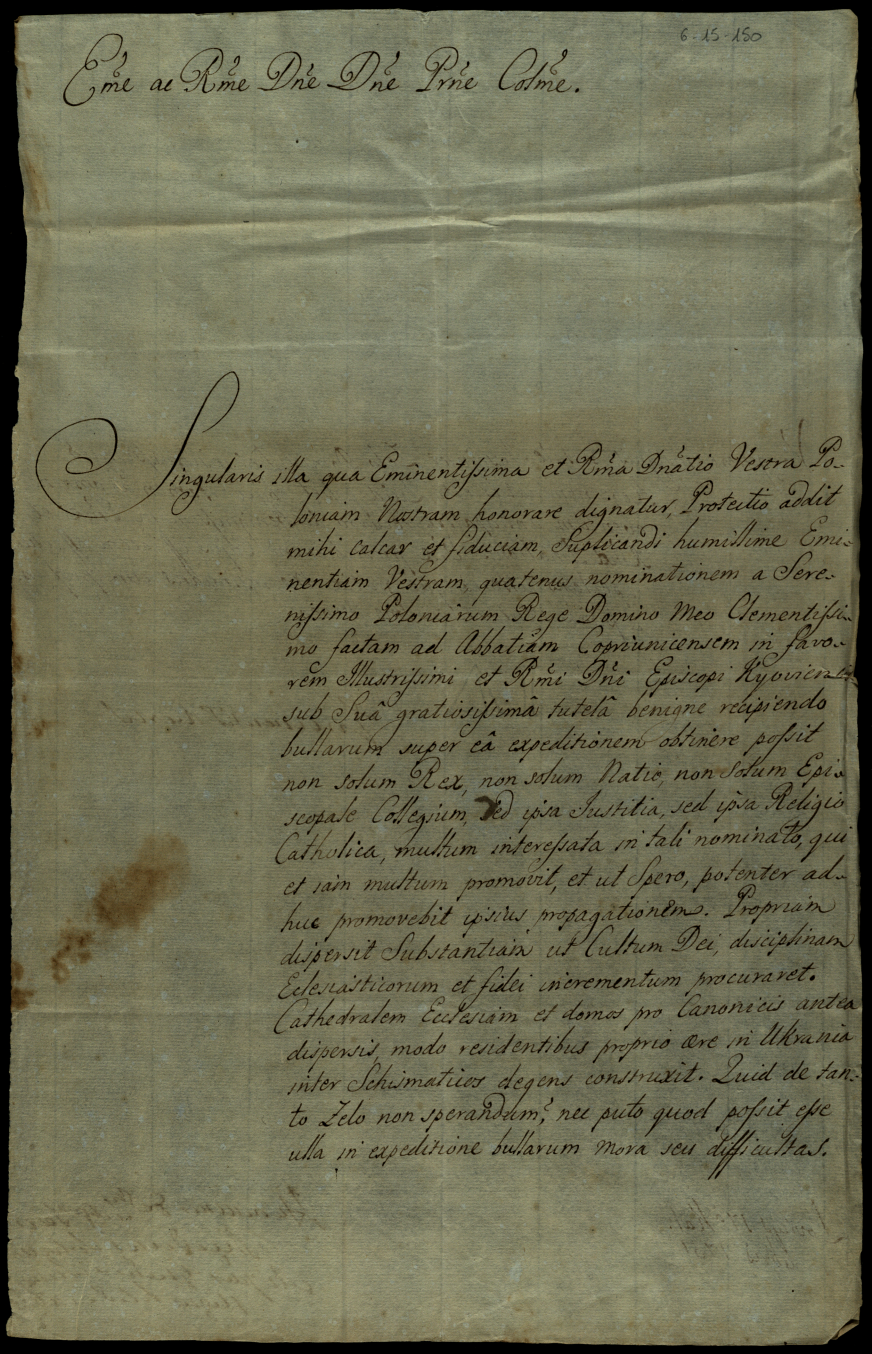 6-15-150
Em̃e ac Rm̃e Dñe Dñe Prñe Colm̃e.
Singularis illa qua Eminentissima et Rm̃a Dñatio Vestra Po-
loniam Nostram honorare dignatur, Protectio addit
mihi calcar et fiduciam, Suplicandi humillime Emi-
nentiam Vestram, quatenus nominationem a Sere-
nissimo Poloniarum Rege Domino Meo Clementissi-
mo factam ad Abbatiam Copriunicensem in favo-
rem Illustrissimi et Rm̃i Dñi Episcopi Kyovien
sub Suâ gratiosissimâ tutelâ benigne recipiendo
bullarum super eâ expeditionem obtinere possit
non solum Rex, non solum Natio, non Solum Epi-
scopale Collegium, sed ipsa Justitia, sed ipsa Religio
Catholica, multum interessata in tali nominato, qui
et iam multum promovit, et ut Spero, potenter ad-
huc promovebit ipsius propagationem. Propriam
dispersit Substantiam ut Cultum Dei, disciplinam
Eclesiasticorum et fidei incrementum procuraret.
Cathedralem Ecclesiam et domos pro Canonicis antea
dispersis, modo residentibus proprio ære in Ukrania
inter Schismaticos degens construxit. Quid de tan-
to Zelo non sperandum? nec puto quod possit esse
ulla in expeditione bullarum mora seu difficultas.